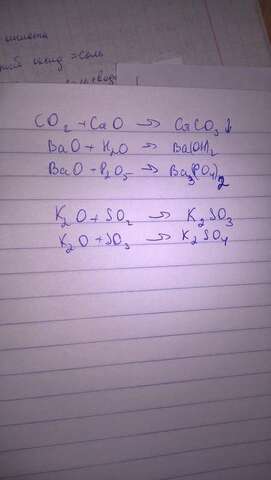 кислота
оксид = соль
CO₂ + CaO → CaCO₃ ↓
BaO + H₂O → Ba(OH)₂
BaO + P₂O₅ → Ba₃(PO₄)₂
K₂O + SO₂ → K₂SO₃
K₂O + SO₃ → K₂SO₄